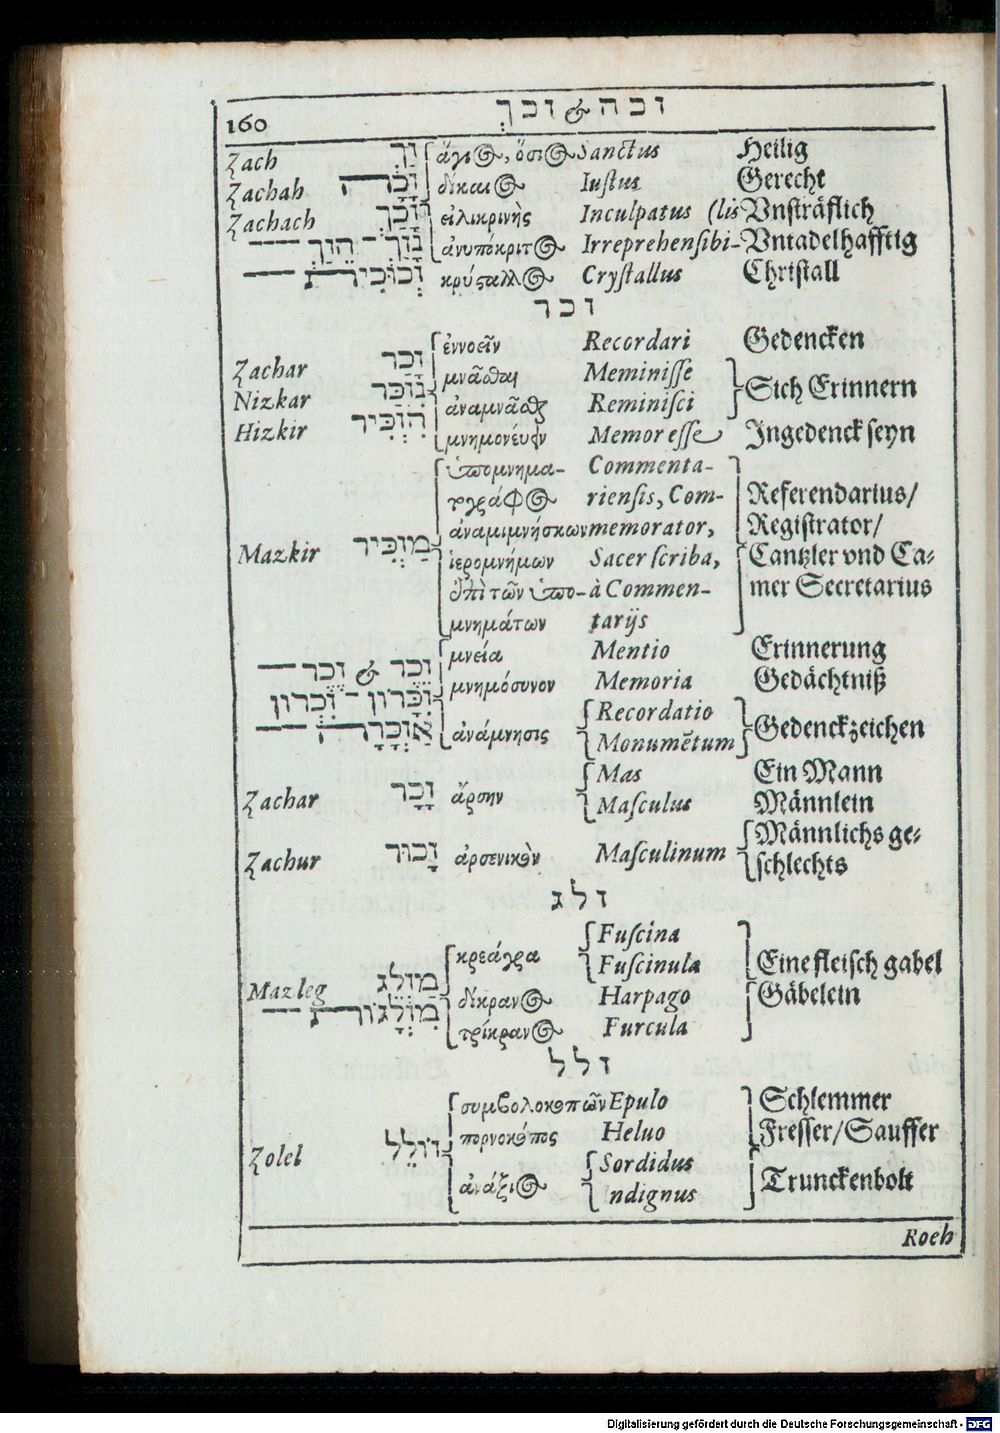 160 זכה & זכך
Zach זַךְ ἅγι𝟿, ὅσι𝟿 Sanctus Heilig
Zachah זָכָה δίκαι𝟿 Iustus Gerecht
Zachach זָכַךְ εἰλικρινὴς Inculpatus (lis Vnsträflich
ἀνυπόκριτ𝟿 Irreprehensibi- Vntadelhafftig
זְכוּכִית κρύσταλλ𝟿 Crystallus Christall
זכר
ἐννοεῖν Recordari Gedencken
Zachar זָכַר μνᾶσθαι Meminisse
Nizkar נִזְכַּר ἀναμνᾶσθαι Reminisci Sich Erinnern
Hizkir הִזְכִּיר μνημονέυειν Memor esse Ingedenck seyn
ὑπομνημα- Commenta-
τογράφ𝟿 riensis, Com- Referendarius/
ἀναμιμνήσκων memorator, Registrator/
Mazkir מַזְכִּיר ἱερομνήμων Sacer scriba, Cantzler vnd Ca-
ἐπὶ τῶν ὑπο- à Commen- mer Secretarius
μνημάτων tarijs
זֵכֶר & זֶכֶר μνεία Mentio Erinnerung
זִכָּרוֹן - זִכְרוֹן μνημόσυνον Memoria Gedächtniß
Recordatio
אַזְכָּרָה ἀνάμνησις Monumētum Gedenckzeichen
Mas Ein Mann
Zachar זָכָר ἄρσην Masculus Männlein
Männlichs ge-
Zachur זָכוּר ἀρσενικὸν Masculinum schlechts
זלג
Fuscina
κρεάγρα Fuscinula Eine fleisch gabel
Mazleg מַזְלֵג δίκραν𝟿 Harpago Gäbelein
מִזְלָגוֹת τρίκραν𝟿 Furcula
זלל
συμβολοκοπῶν Epulo Schlemmer
πορνοκόπος Heluo Fresser/Sauffer
Zolel זוֹלֵל Sordidus
ἀνάξι𝟿 ndignus Trunckenbolt
Roeh
Digitalisierung gefördert durch die Deutsche Forschungsgemeinschaft - DFG